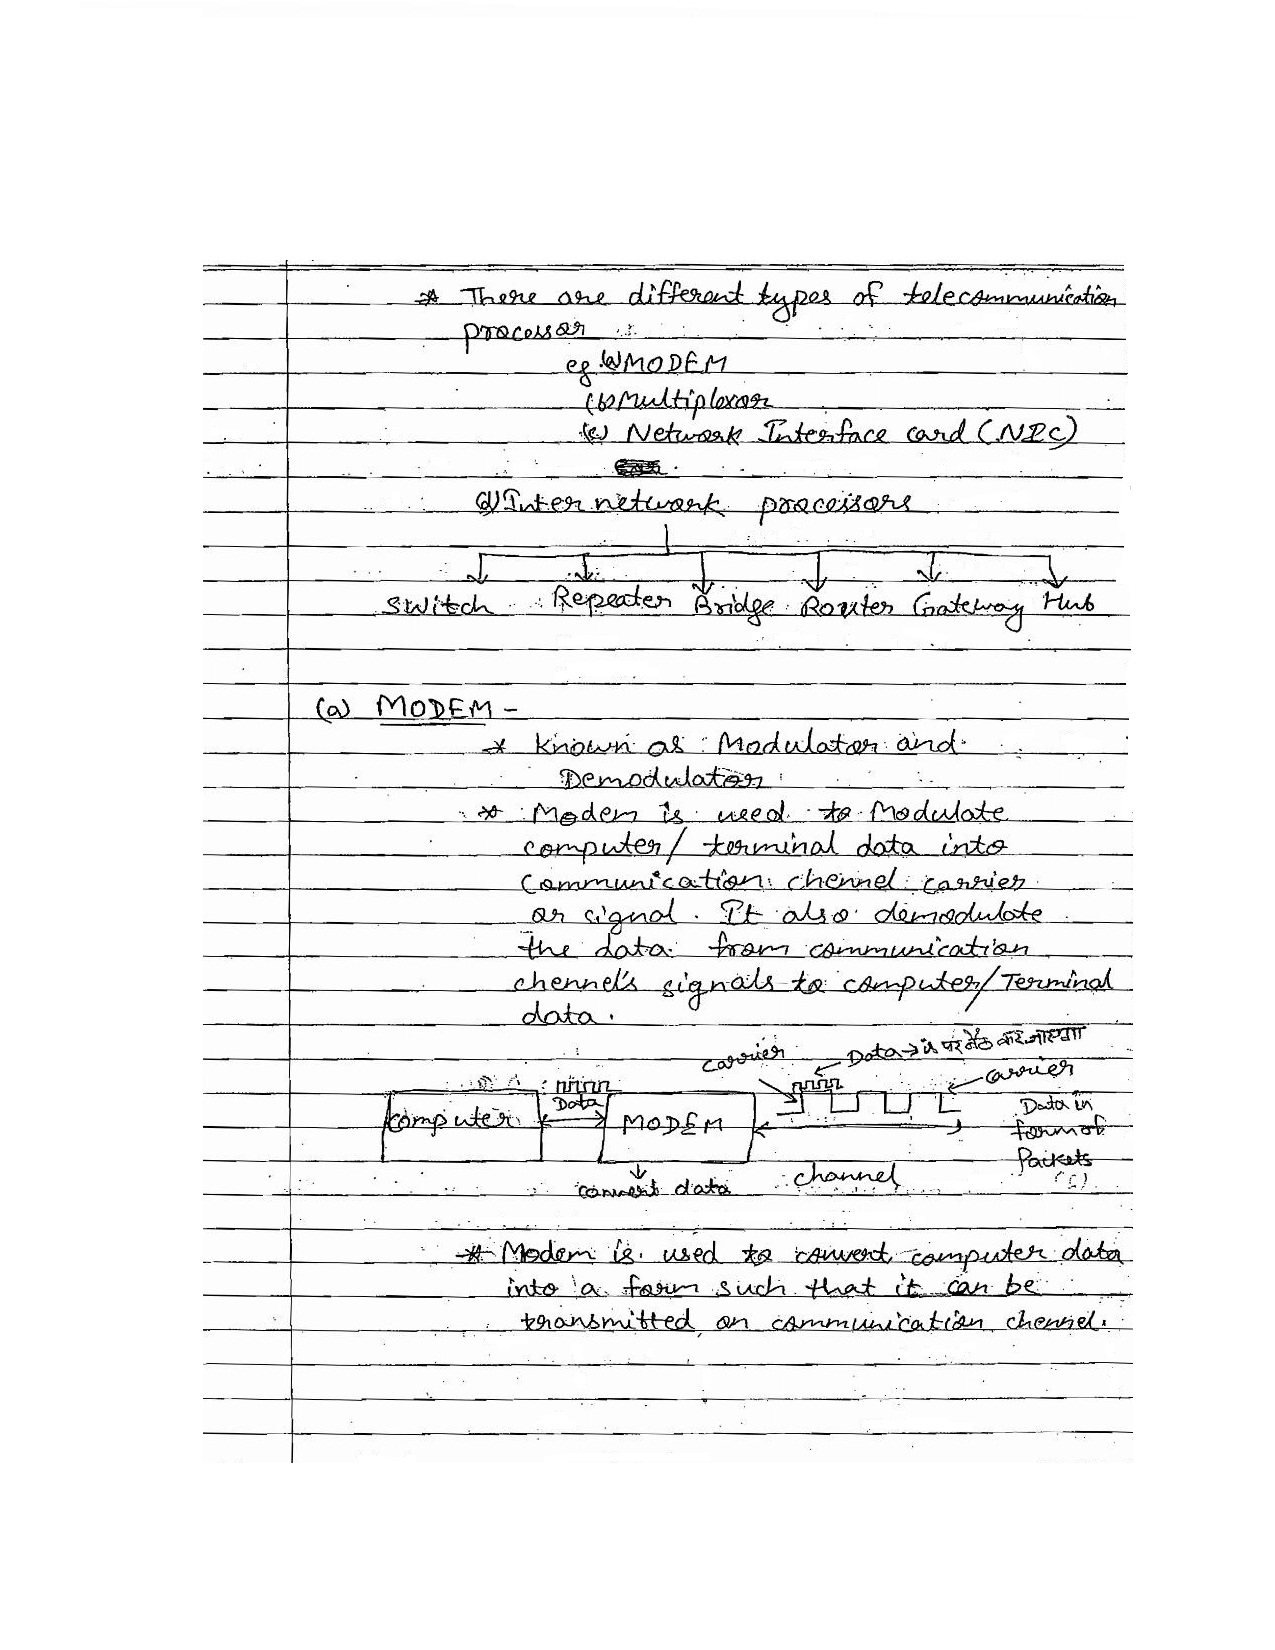 * There are different types of telecommunication
processor
eg. (a) MODEM
(b) Multiplexor
(c) Network Interface card (NIC)
(d) Inter network processors
Switch Repeater Bridge Router Gateway Hub
(a) MODEM -
* Known as Modulator and
Demodulator
* Modem is used to Modulate
computer/ terminal data into
Communication chennel carrier
or signal. It also demodulate
the data from communication
chennel's signals to computer/Terminal
data.
carrier Data → is पर बैठ कर जाएगा
carrier
Data
computer MODEM
Data in
form of
Packets
channel
convert data
* Modem is used to convert computer data
into a form such that it can be
transmitted on communication chennel.